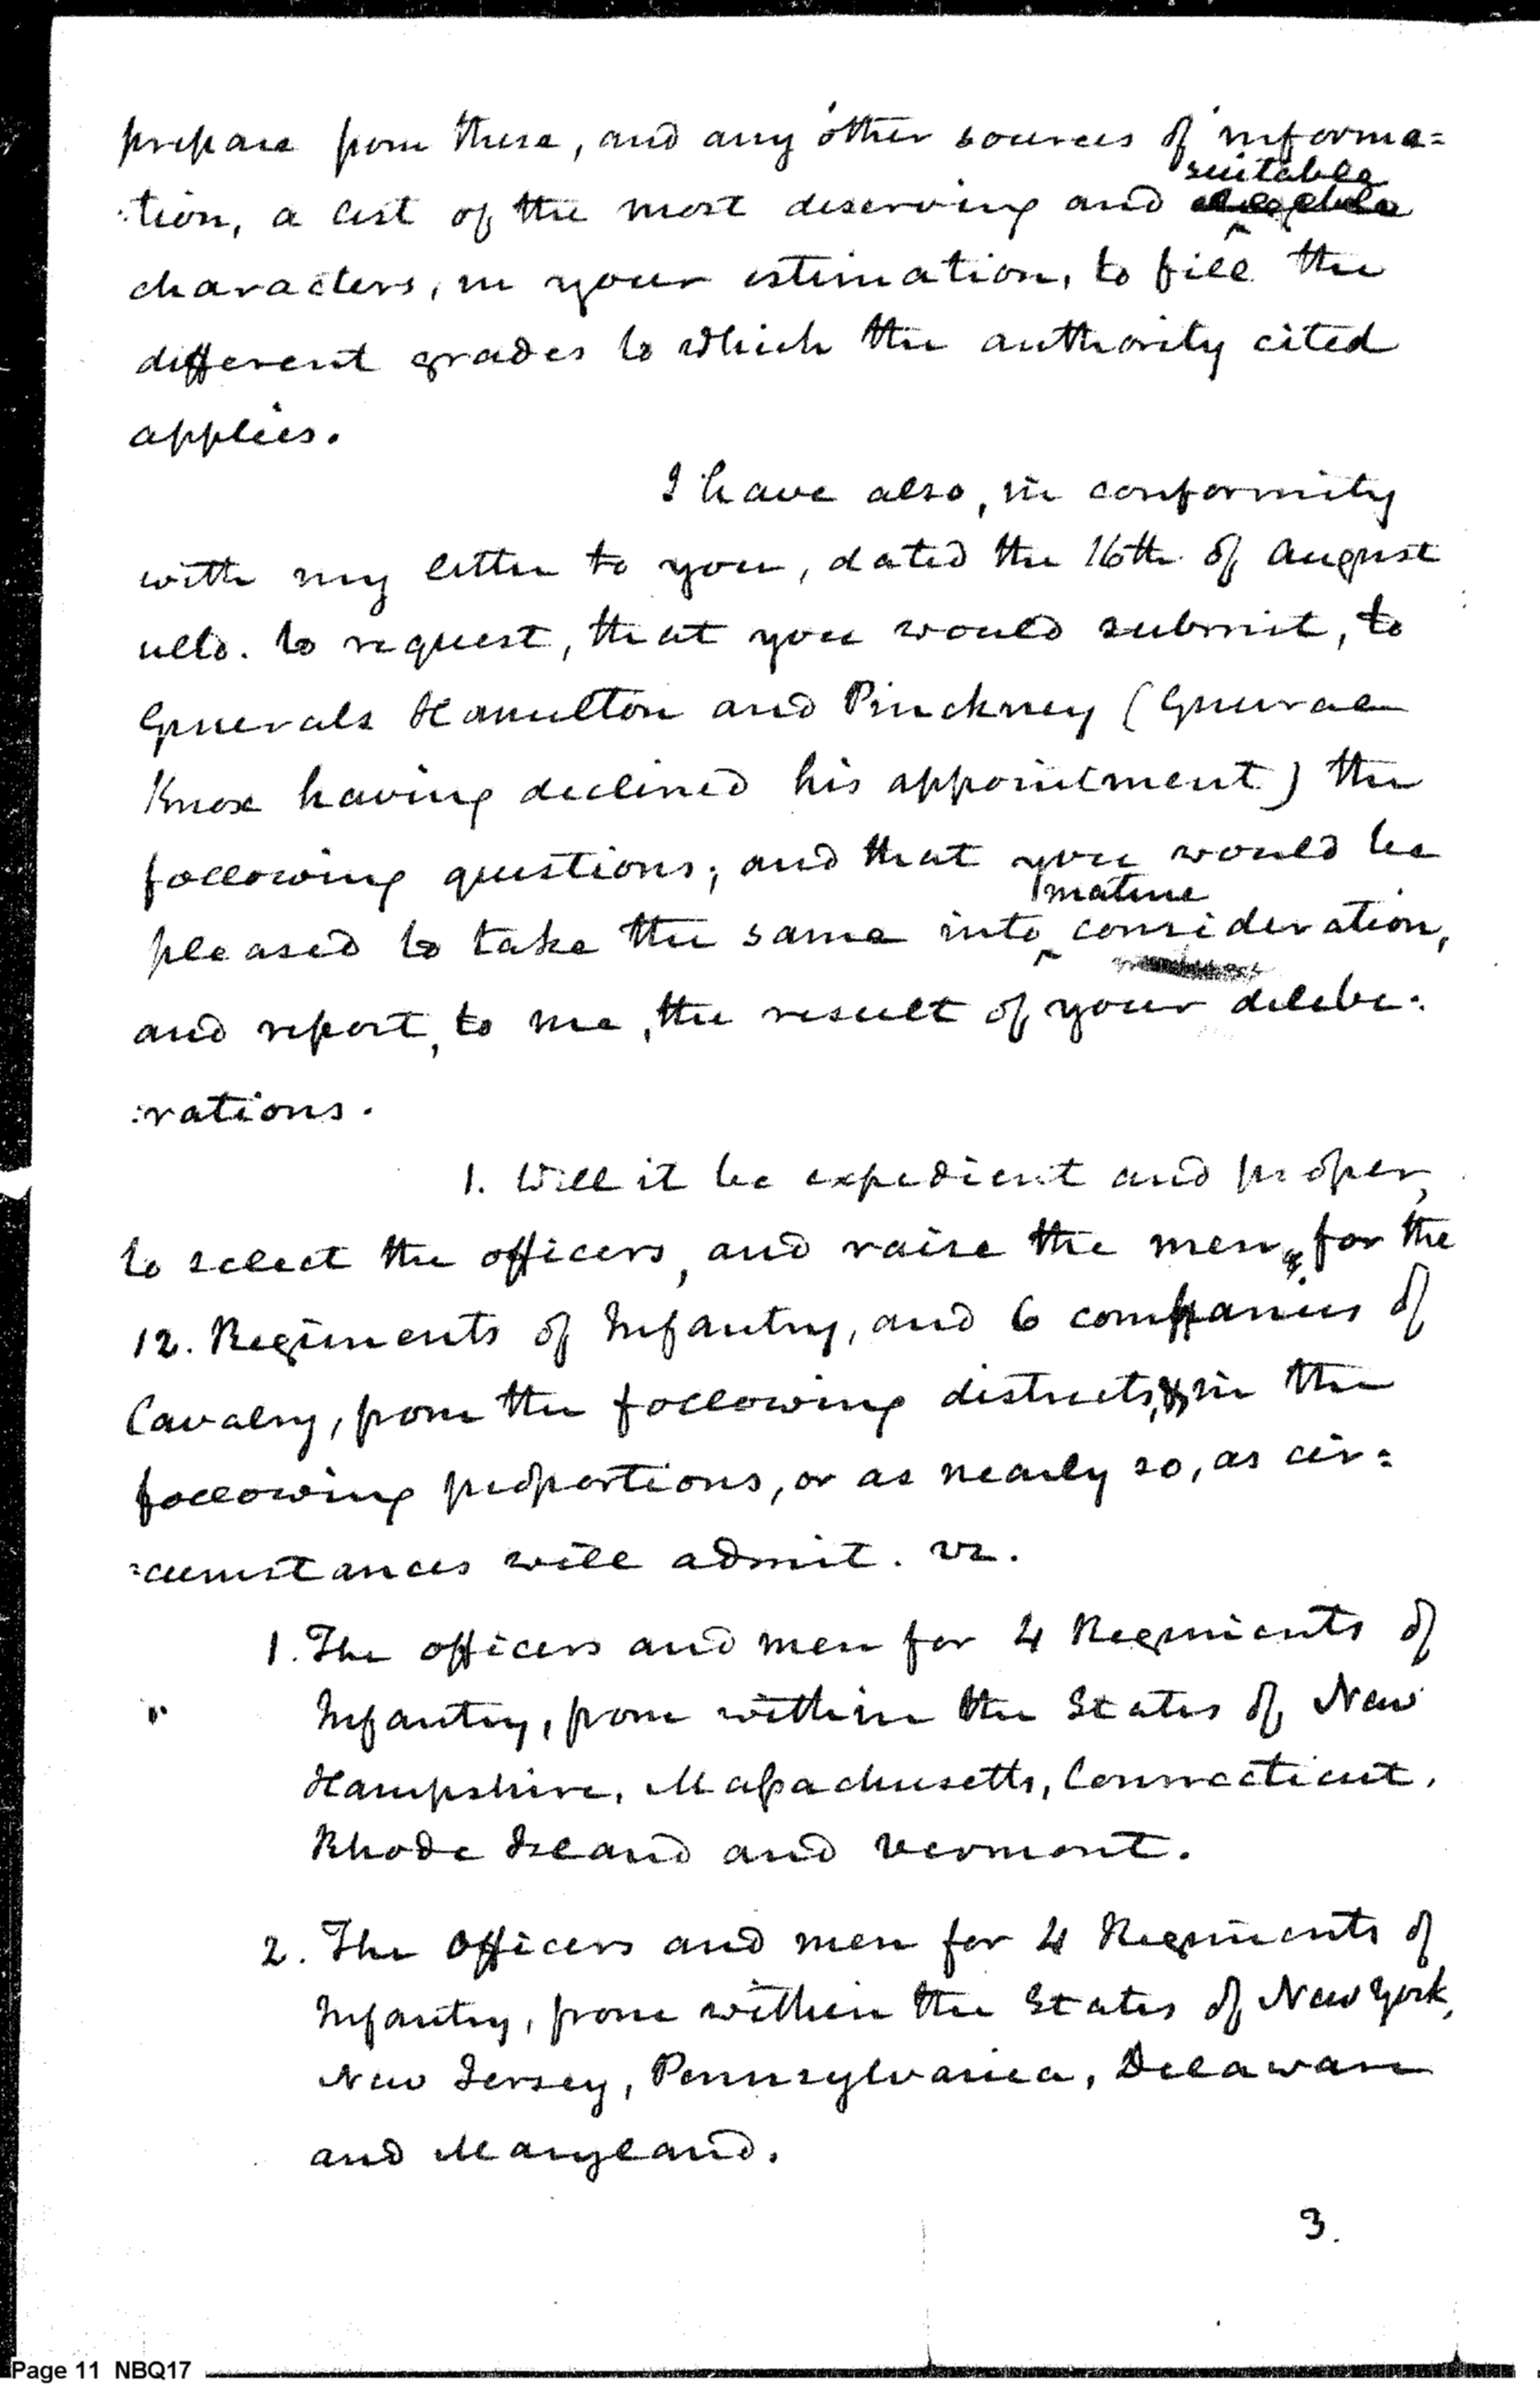 prepare from these, and any other sources of informa=
:tion, a list of the most deserving and suitable
characters, in your estimation, to fill the
different grades to which the authority cited
applies.
I have also, in conformity
with my letter to you, dated the 16th. of August
ulto. to request, that you would submit, to
Generals Hamilton and Pinckney (General
Knox having declined his appointment) the
following questions; and that you would be
pleased to take the same into mature consideration,
and report, to me, the result of your delibe:
:rations.
1. Will it be expedient and proper,
to select the officers, and raise the men, for the
12. Regiments of Infantry, and 6 companies of
Cavalry, from the following districts, & in the
following proportions, or as nearly so, as cir=
=cumstances will admit. vz.
1. The officers and men for 4 Regiments of
Infantry, from within the States of New
Hampshire, Massachusetts, Connecticut,
Rhode Island and Vermont.
2. The Officers and men for 4 Regiments of
Infantry, from within the States of New York,
New Jersey, Pennsylvania, Delaware
and Maryland.
3.
Page 11 NBQ17